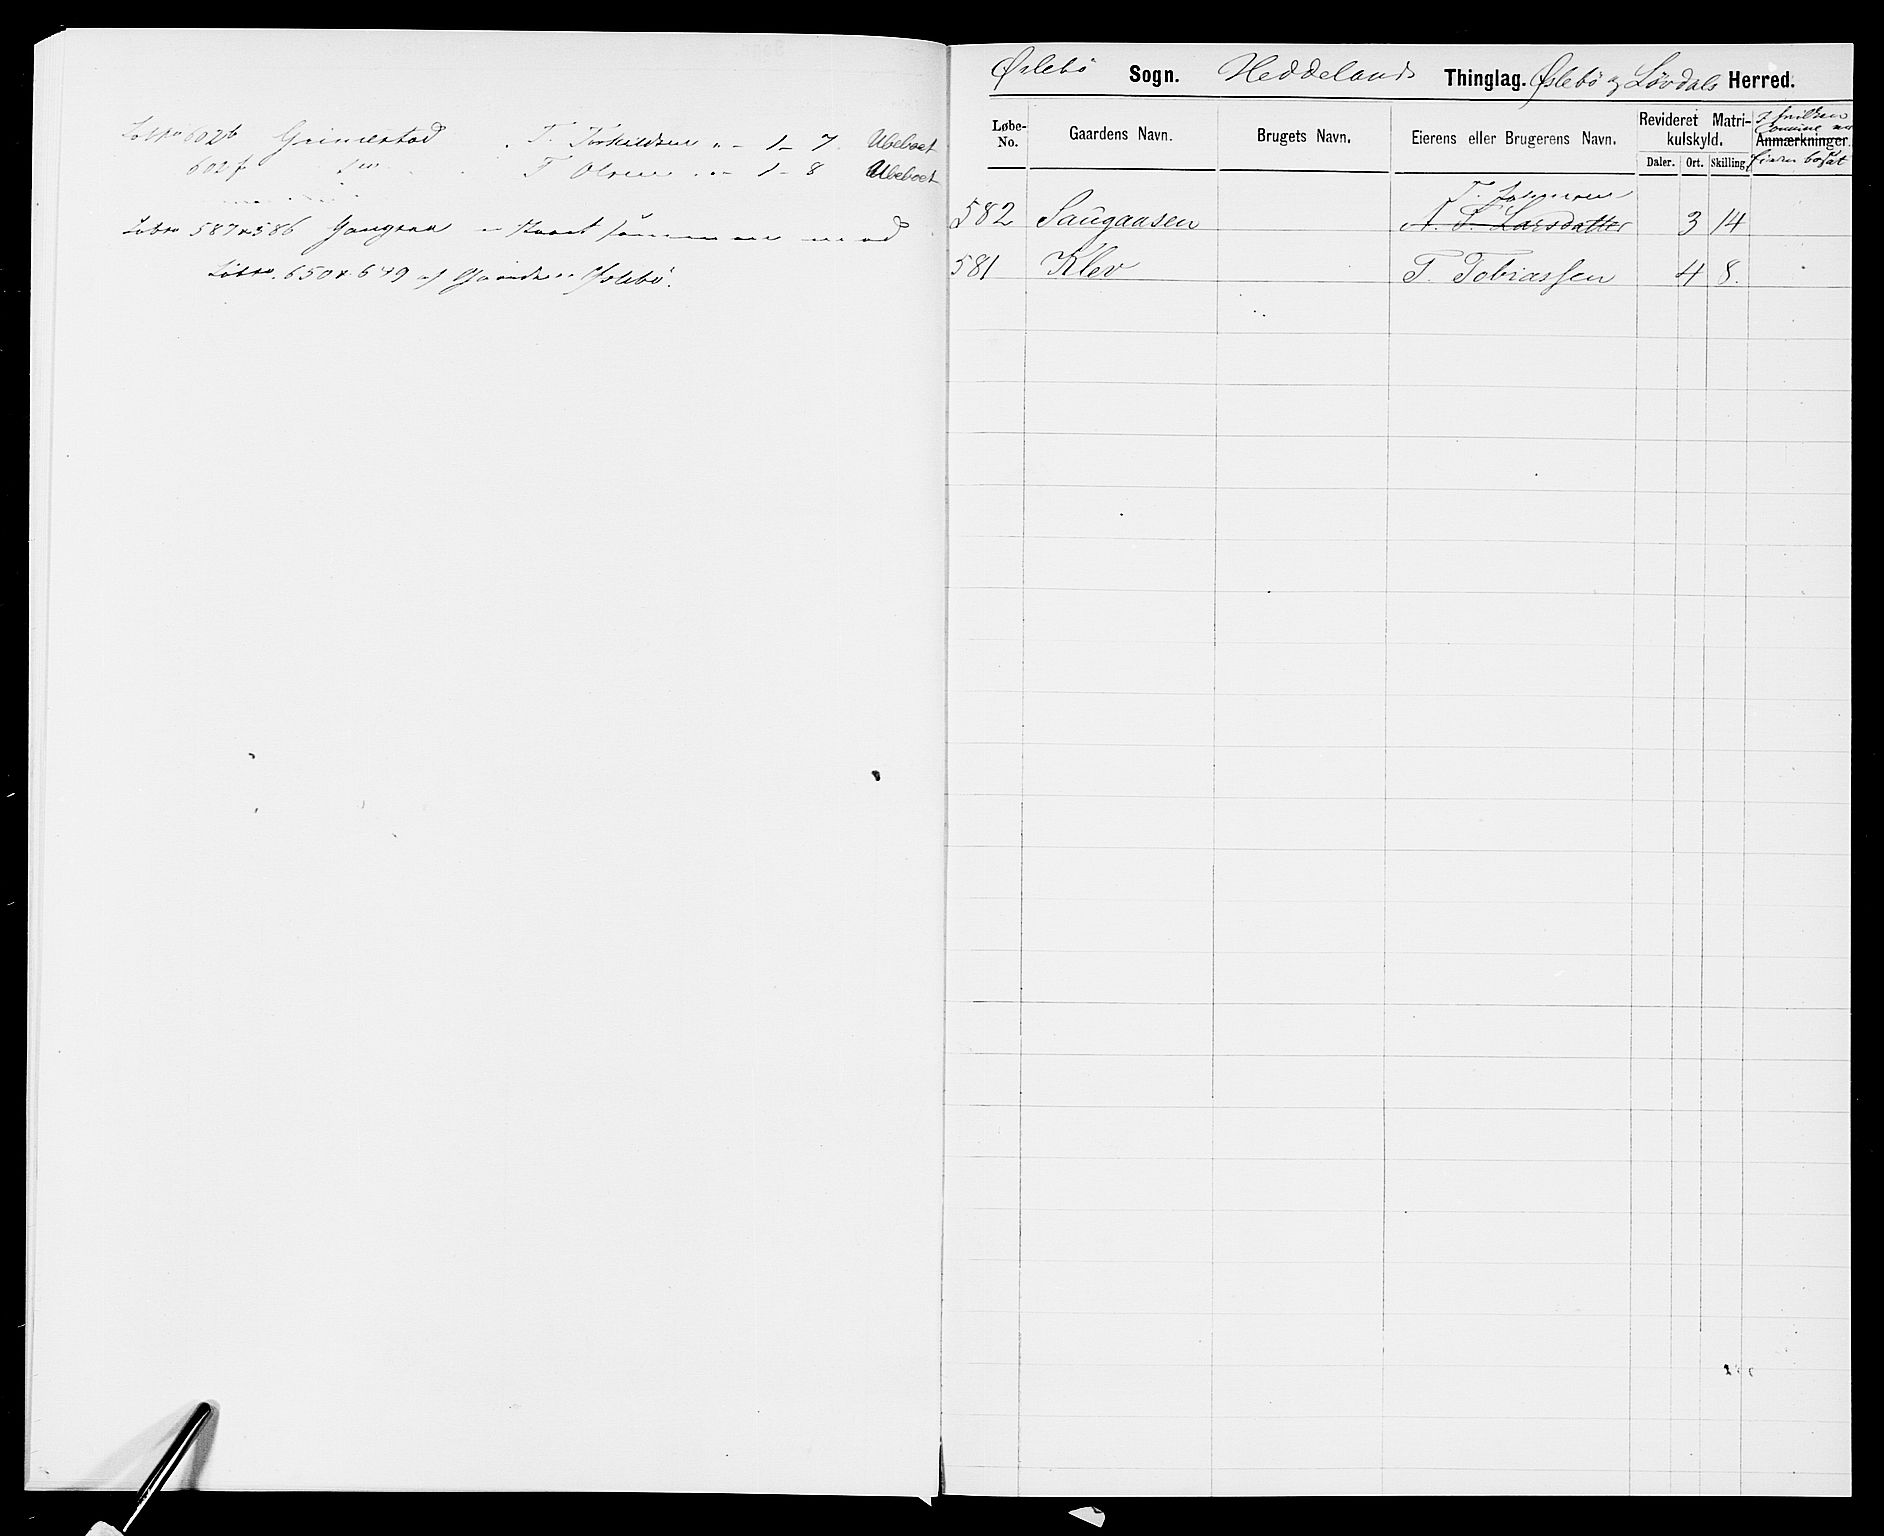 Løbno 602b Grimestad . T. Torkildsen " - 1 - 7 Ubeboet
602f T Olsen " - 1 - 8 Ubeboet
Løbno 587 & 586 med
Løbno. 650 & 649 af Øslebö.
Øslebö Sogn. Heddelands Thinglag. Øslebö og Løvdals Herred.
Løbe-No. Gaardens Navn. Brugets Navn. Eierens eller Brugerens Navn. Revideret Matrikulskyld. Anmærkninger.
I hvilken
Eieren bosat
Daler. Ort. Skilling.
582 Saugaasen A. T. Larsdatter 3 14
581 Klev T. Tobiassen 4 8.